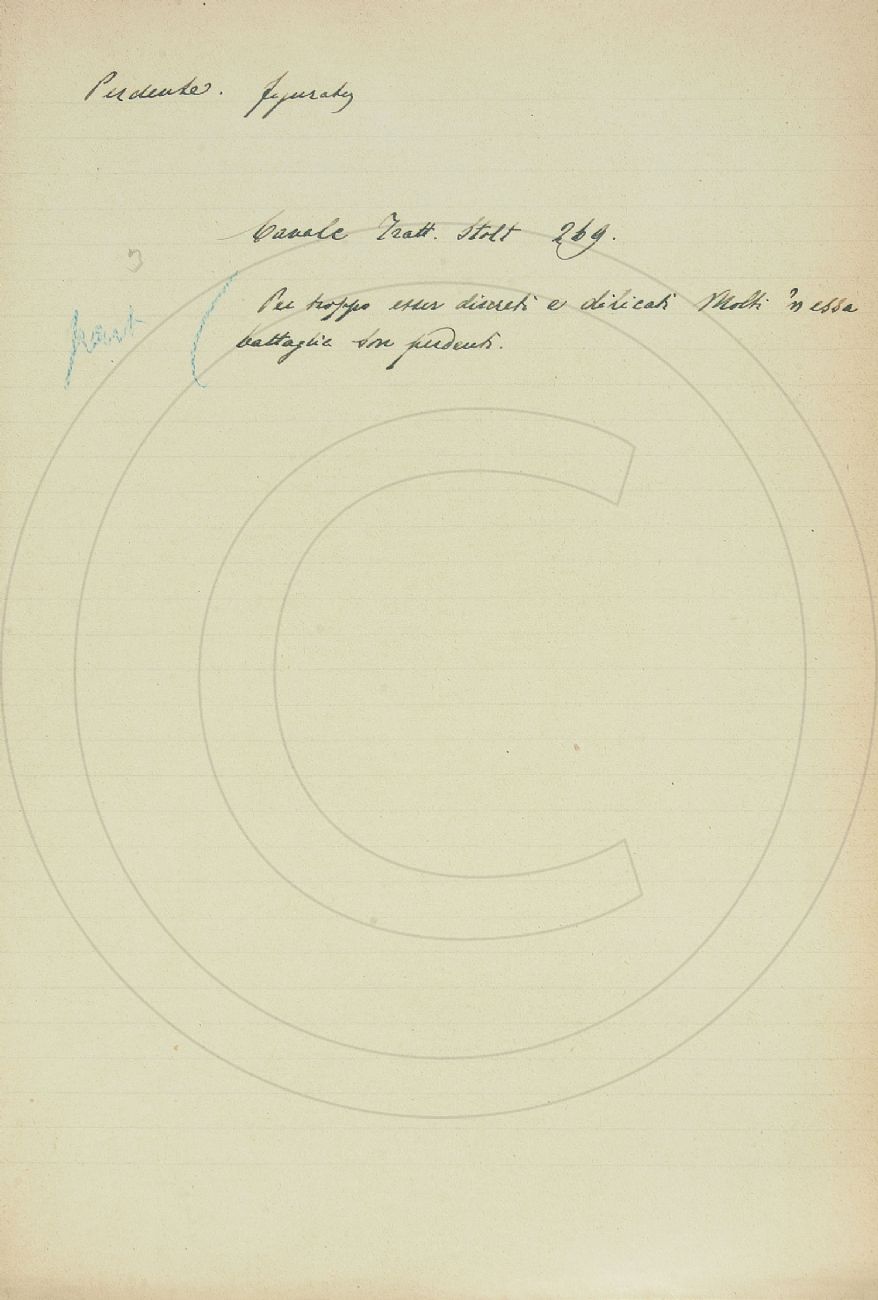 Perdente. figurato
Cavalc Tratt. Stolt 269.
3
Per troppo esser discreti e dilicati Molti 'n essa
battaglia son perdenti.